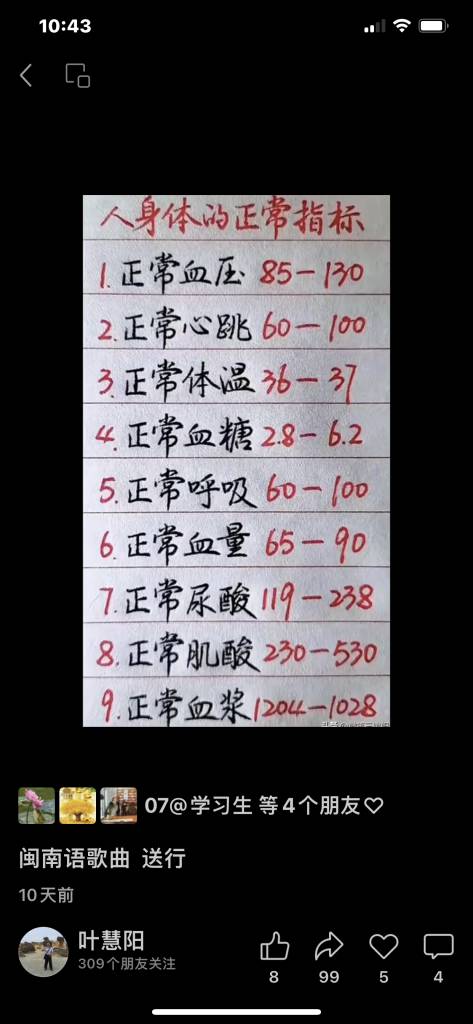 10:43
人身体的正常指标
1.正常血压 85-130
2.正常心跳 60-100
3.正常体温 36-37
4.正常血糖 2.8-6.2
5.正常呼吸 60-100
6.正常血量 65-90
7.正常尿酸 119-238
8.正常肌酸 230-530
9.正常血浆 1204-1028
07@学习生 等4个朋友♡
闽南语歌曲 送行
10天前
叶慧阳
309个朋友关注
8 99 5 4